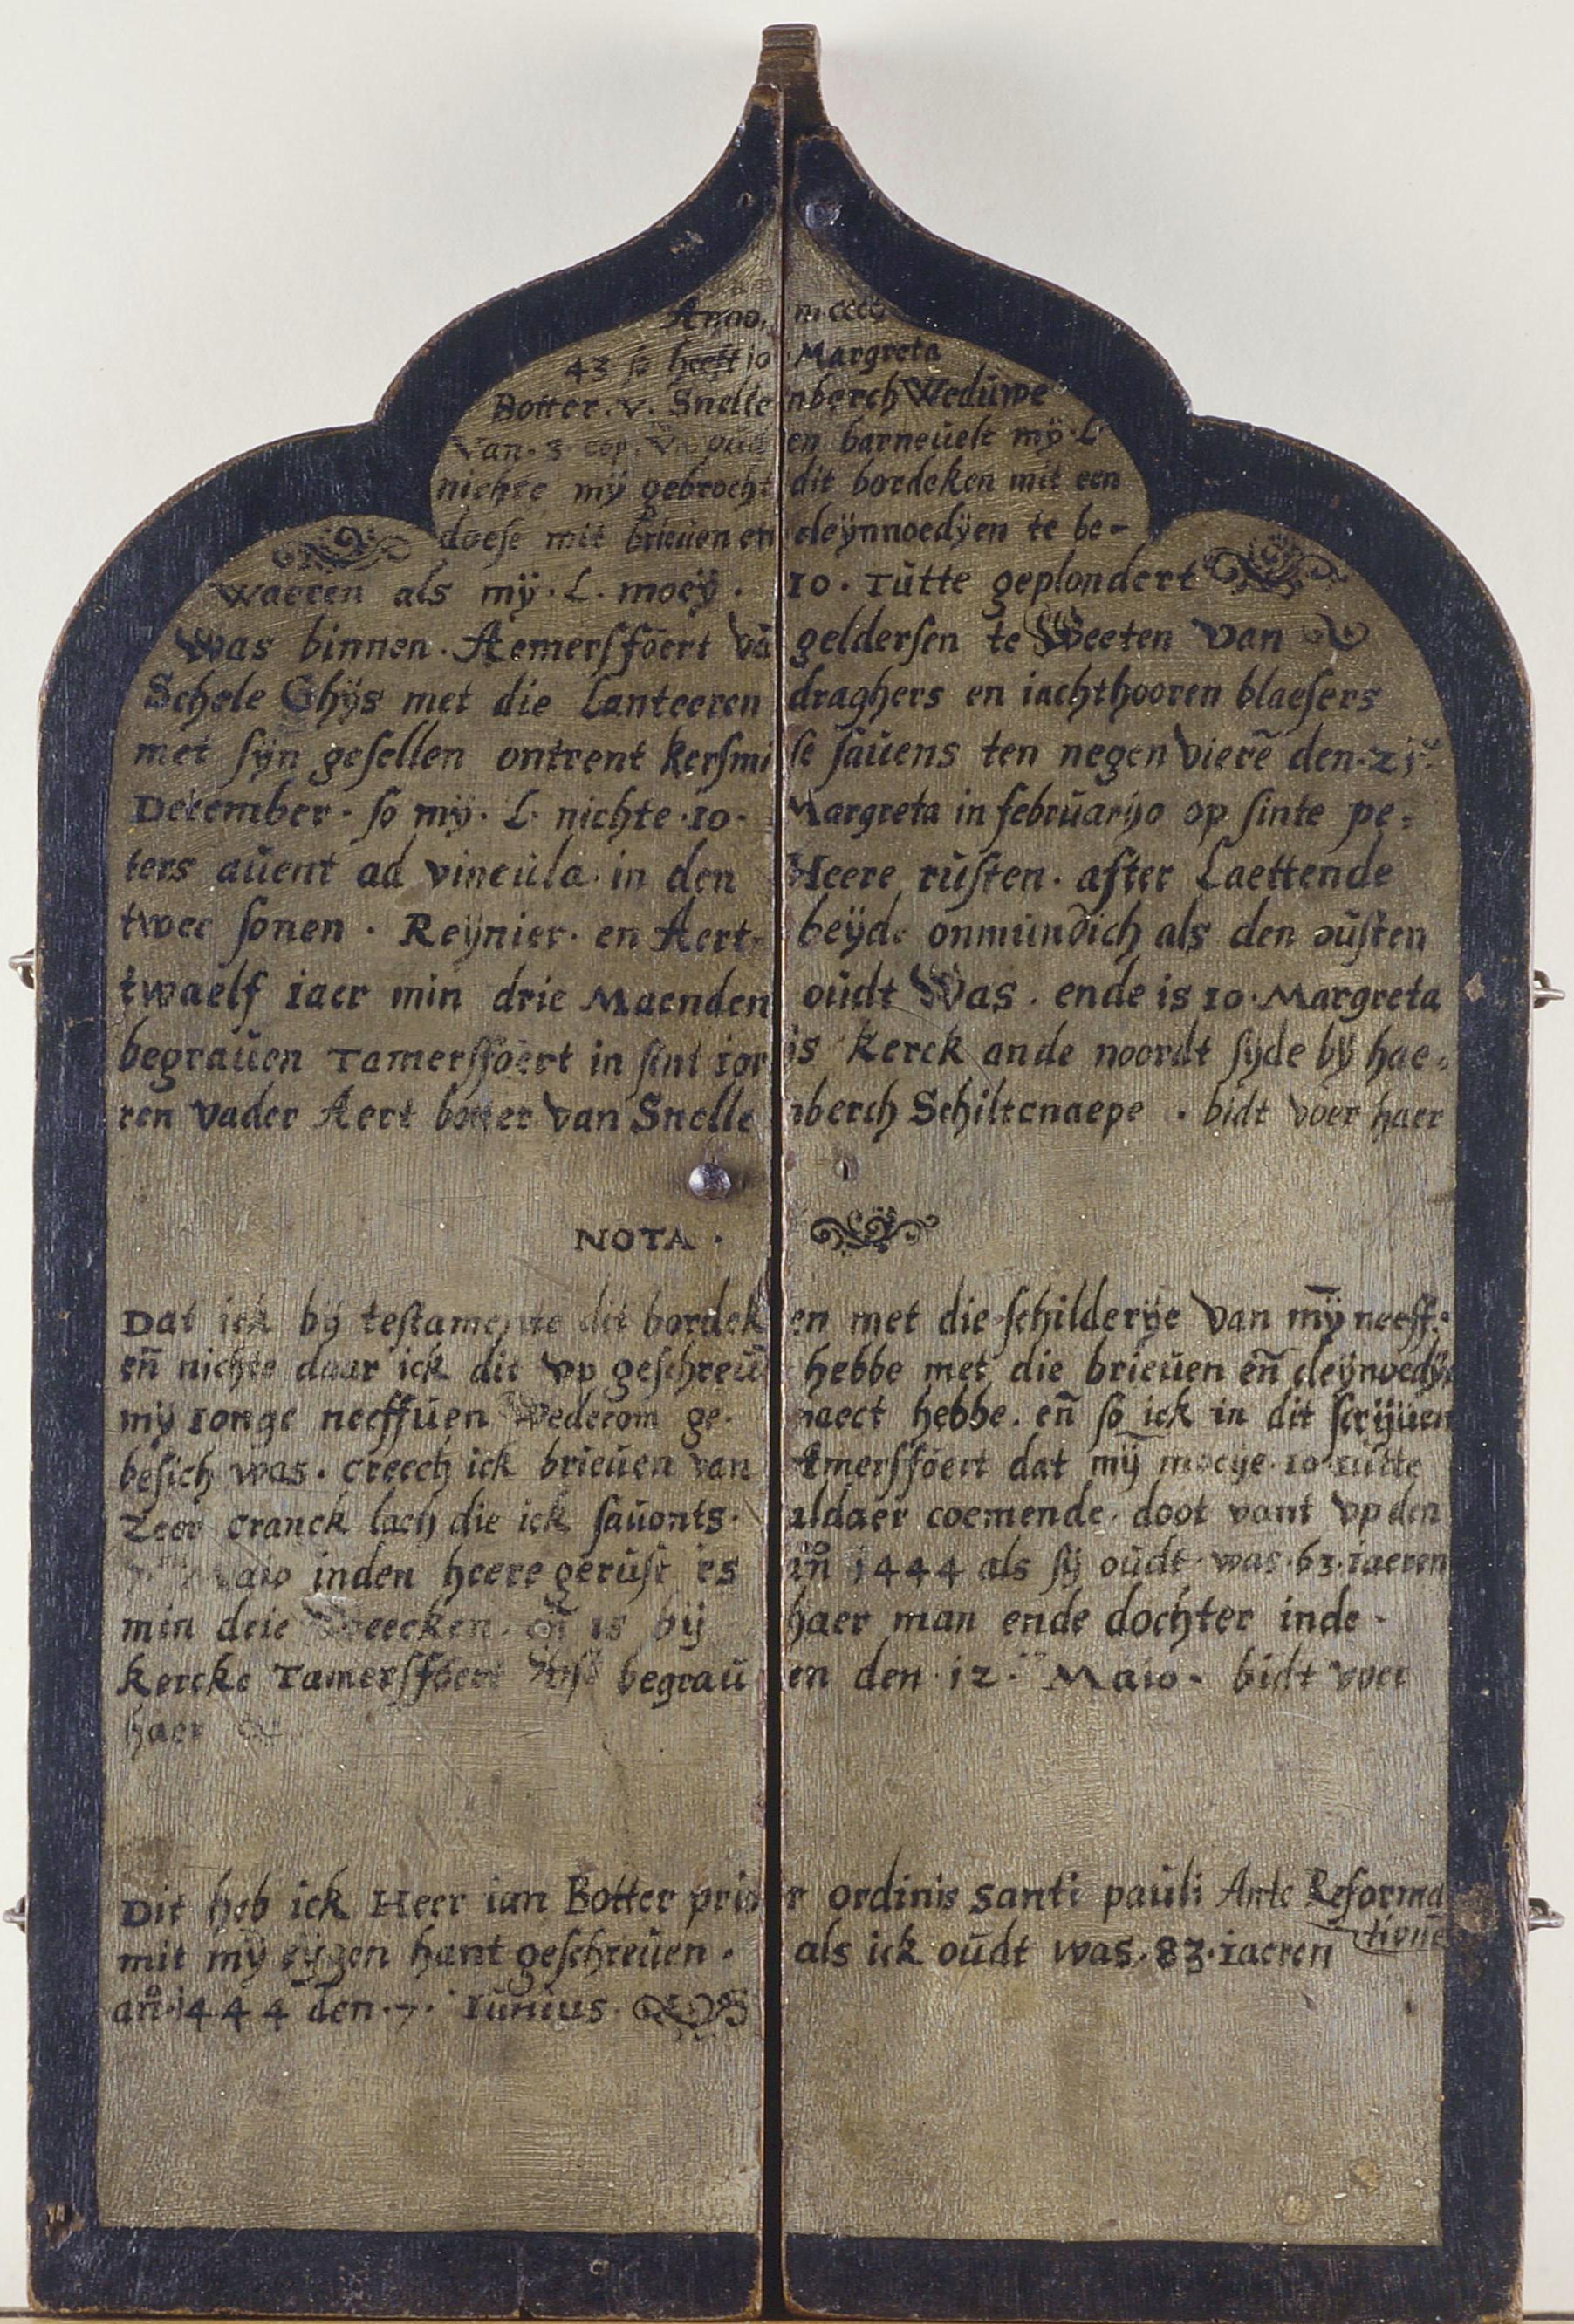 Anno. m·cccc
43 so heeft io Margreta
Botter. v. Snellenberch Wedůwe
Van· oůden barneůelt mÿ·L·
nichte mÿ gebrocht dit bordeken mit een
doese mit brieůen en cleÿnnoedÿen te be-
waeren als mÿ·L·moeÿ· Io·Iůtte geplondert
Was binnen·Aemersfoert vā geldersen te Weeten van
Schele Ghÿs met die Lanteeren draghers en iachthooren blaesers
met sÿn gesellen ontrent kersmisse saůens ten negen vierē den·21
December·so mÿ·L·nichte·Io·Margreta in februarÿo op sinte pe-
ters aůent ad vincůla·in den Heere růsten·after Laettende
twee sonen·Reÿnier·en Aert beÿde onmůndich als den oůsten
twaelf Iaer min drie Maenden oůdt Was·ende is Io·Margreta
begraůen Tamersfoert in sint Ioris kerck ande noordt sÿde bÿ hae-
ren Vader Aert botter van Snellenberch Schiltcnaepe·bidt voer haer
NOTA·
Dat ick bÿ testamente dit bordeken met die schilderÿe van mÿ neeff·
eñ nichte daar ick dit vp geschreů hebbe met die brieůen eñ cleÿnoedÿ
mÿ Ionge neeffůen Wederom ge·maect hebbe·eñ so ick in dit scrÿůen
besich was·creech ick brieůen van Amersfoert dat mÿ moeÿe·Io·Iůtte
Zeer cranck lach die ick saůonts·aldaer coemende·doot vant vp den
Maio inden heere gerůst is 1444 als sÿ oůdt was·63·Iaeren
min drie Weecken·eñ is bÿ haer man ende dochter inde-
kercke Tamersfoert begraůen den·12· Maio·bidt voer
haer
Dit heb ick Heer ian Botter prior ordinis santi paůli Ante Reforma
tione
mit mÿ eÿgen hant geschreůen·als ick oůdt was·83·Iaeren
añ·1444 den·7·Iůnius·